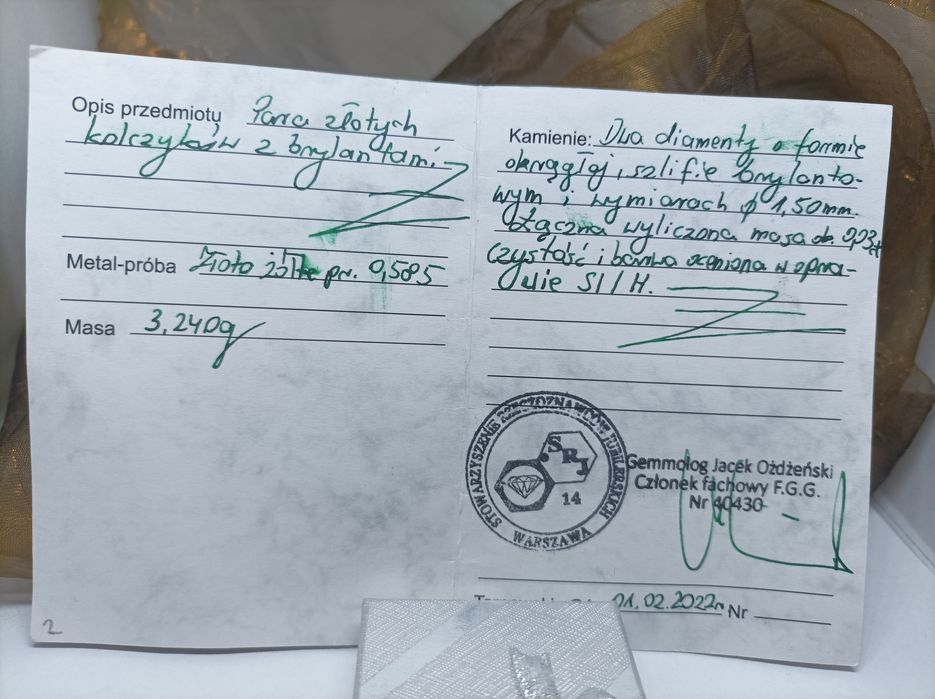 Opis przedmiotu Para złotych
kolczyków z brylantami
Metal-próba Złoto żółte pr. 0,585
Masa 3,240g
2
Kamienie: Dwa diamenty o formie
okrągłej, szlifie brylanto-
wym i wymiarach ϕ 1,50mm.
Łączna wyliczona masa ok. 0,03ct
czystość i barwa oceniona w opra-
wie SI/H.
STOWARZYSZENIE RZECZOZNAWCÓW JUBILERSKICH
SRJ
14
WARSZAWA
Gemmolog Jacek Ożdżeński
Członek fachowy F.G.G.
Nr 40430
01.02.2022r Nr